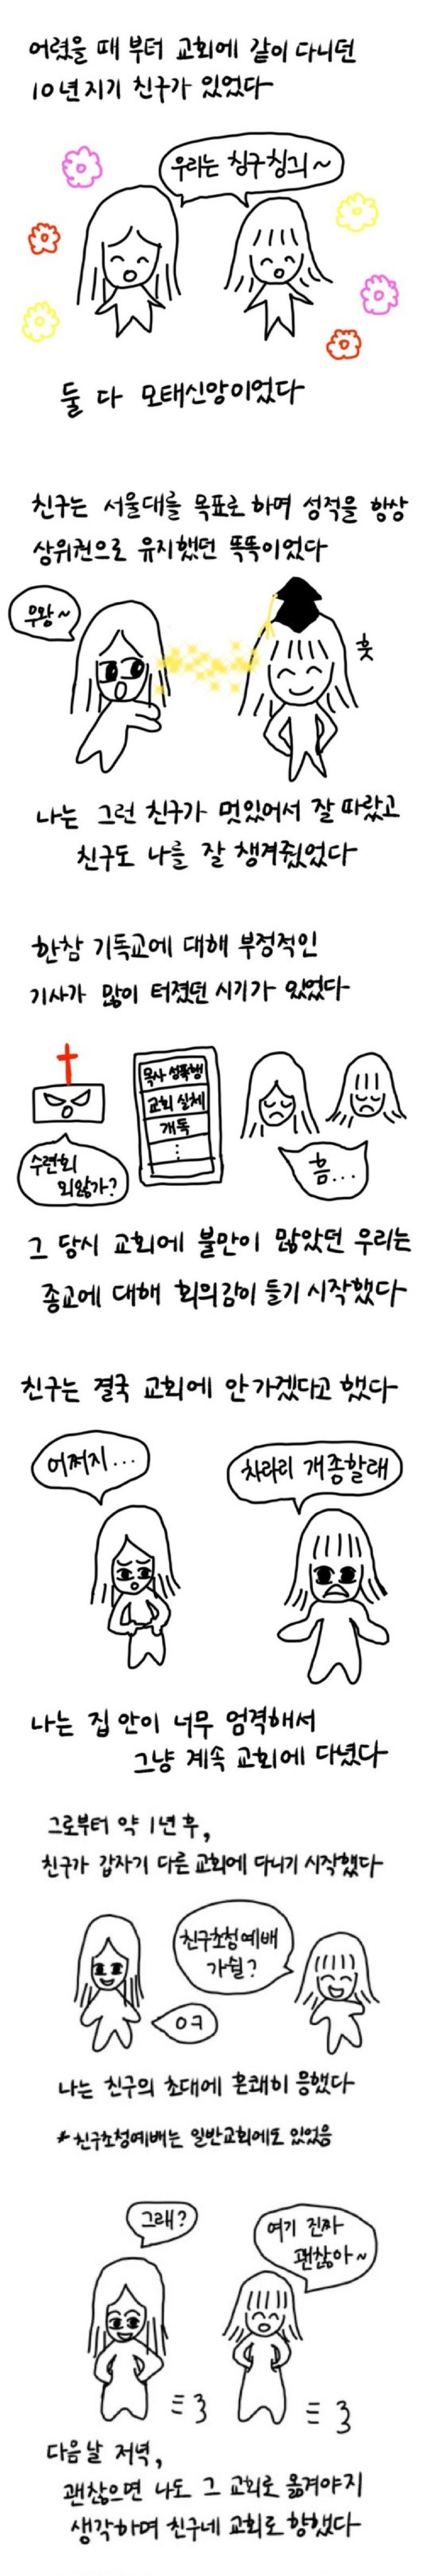 어렸을 때 부터 교회에 같이 다니던
10년지기 친구가 있었다
우리는 칭구칭긔~
둘 다 모태신앙이었다
친구는 서울대를 목표로 하며 성적을 항상
상위권으로 유지했던 똑똑이었다
우왕~
훗
나는 그런 친구가 멋있어서 잘 따랐고
친구도 나를 잘 챙겨줬었다
한참 기독교에 대해 부정적인
기사가 많이 터졌던 시기가 있었다
목사 성폭행
교회 실체
개독
⋮
수련회
왜안가?
흠...
그 당시 교회에 불만이 많았던 우리는
종교에 대해 회의감이 들기 시작했다
친구는 결국 교회에 안가겠다고 했다
어쩌지...
차라리 개종할래
나는 집안이 너무 엄격해서
그냥 계속 교회에 다녔다
그로부터 약 1년 후,
친구가 갑자기 다른 교회에 다니기 시작했다
친구초청예배
가쉴?
ㅇㅋ
나는 친구의 초대에 흔쾌히 응했다
*친구초청예배는 일반교회에도 있었음
그래?
여기 진짜
괜찮아~
다음날 저녁,
괜찮으면 나도 그 교회로 옮겨야지
생각하며 친구네 교회로 향했다